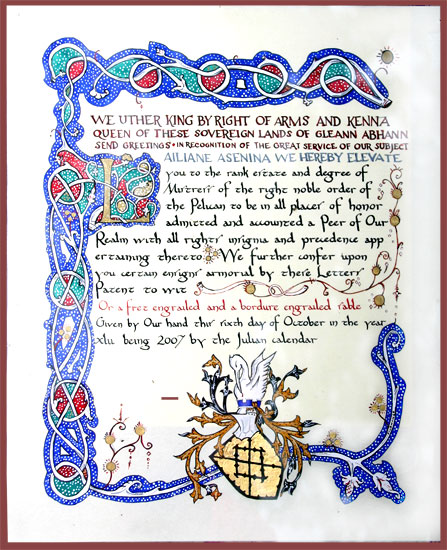 WE UTHER KING BY RIGHT OF ARMS AND KENNA
QUEEN OF THESE SOVEREIGN LANDS OF GLEANN ABHANN
SEND GREETINGS • IN RECOGNITION OF THE GREAT SERVICE OF OUR SUBJECT
AILIANE ASENINA WE HEREBY ELEVATE
you to the rank estate and degree of
Mistress of the right noble order of
the Pelican to be in all places of honor
admitted and accounted a Peer of Our
Realm with all rights insignia and precedence app
ertaining thereto We further confer upon
you certain ensigns armorial by these Letters
Patent to wit
Or a fret engrailed and a bordure engrailed sable
Given by Our hand this sixth day of October in the year
xlii being 2007 by the Julian calendar